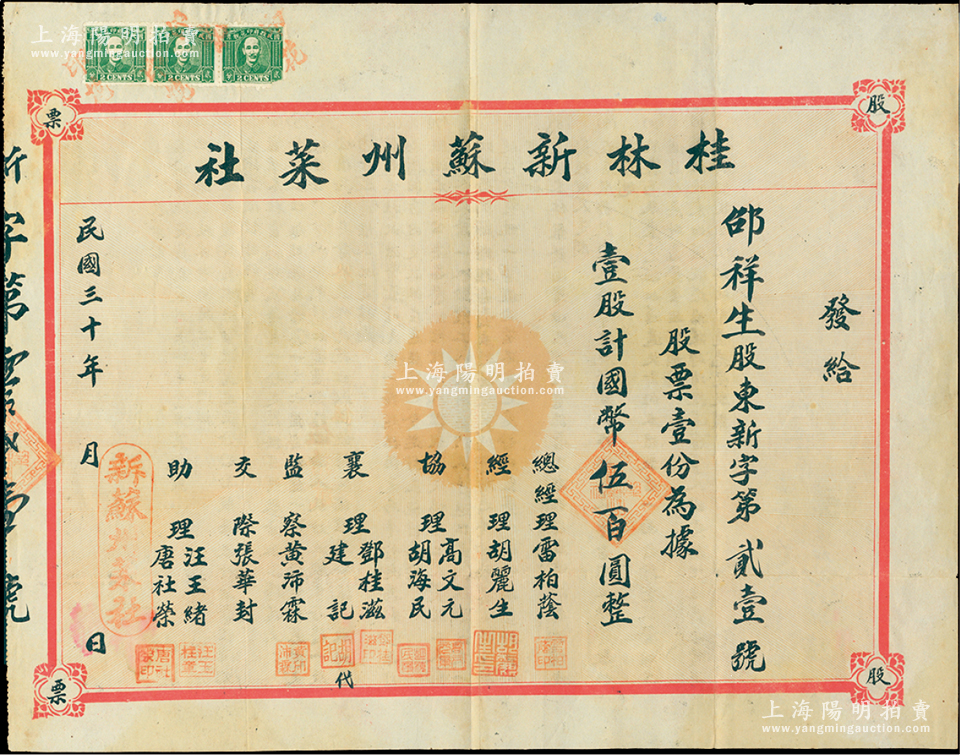 上海陽明拍賣
www.yangmingauction.com
2 CENTS
2 CENTS
2 CENTS
股
票
股
票
桂林新蘇州菜社
發給
邵祥生股東新字第貳壹號
股票壹份為據
壹股計國幣伍百圓整
總經理雷柏蔭
經理胡麗生
協理高文元
胡海民
襄理鄧桂滋
建記
代
監察黃沛霖
交際張華封
助理汪王緒
唐社榮
民國三十年 月 日
新蘇州菜社
新字第
號
上海陽明拍賣
www.yangmingauction.com
上海陽明拍賣
www.yangmingauction.com